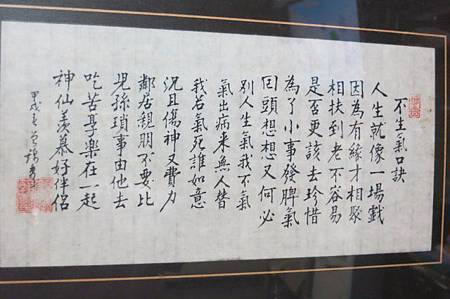 不生氣口訣
人生就像一場戲
因為有緣才相聚
相扶到老不容易
是否更該去珍惜
為了小事發脾氣
回頭想想又何必
別人生氣我不氣
氣出病來無人替
我若氣死誰如意
況且傷神又費力
鄰居親朋不要比
兒孫瑣事由他去
吃苦享樂在一起
神仙羨慕好伴侶
甲戌